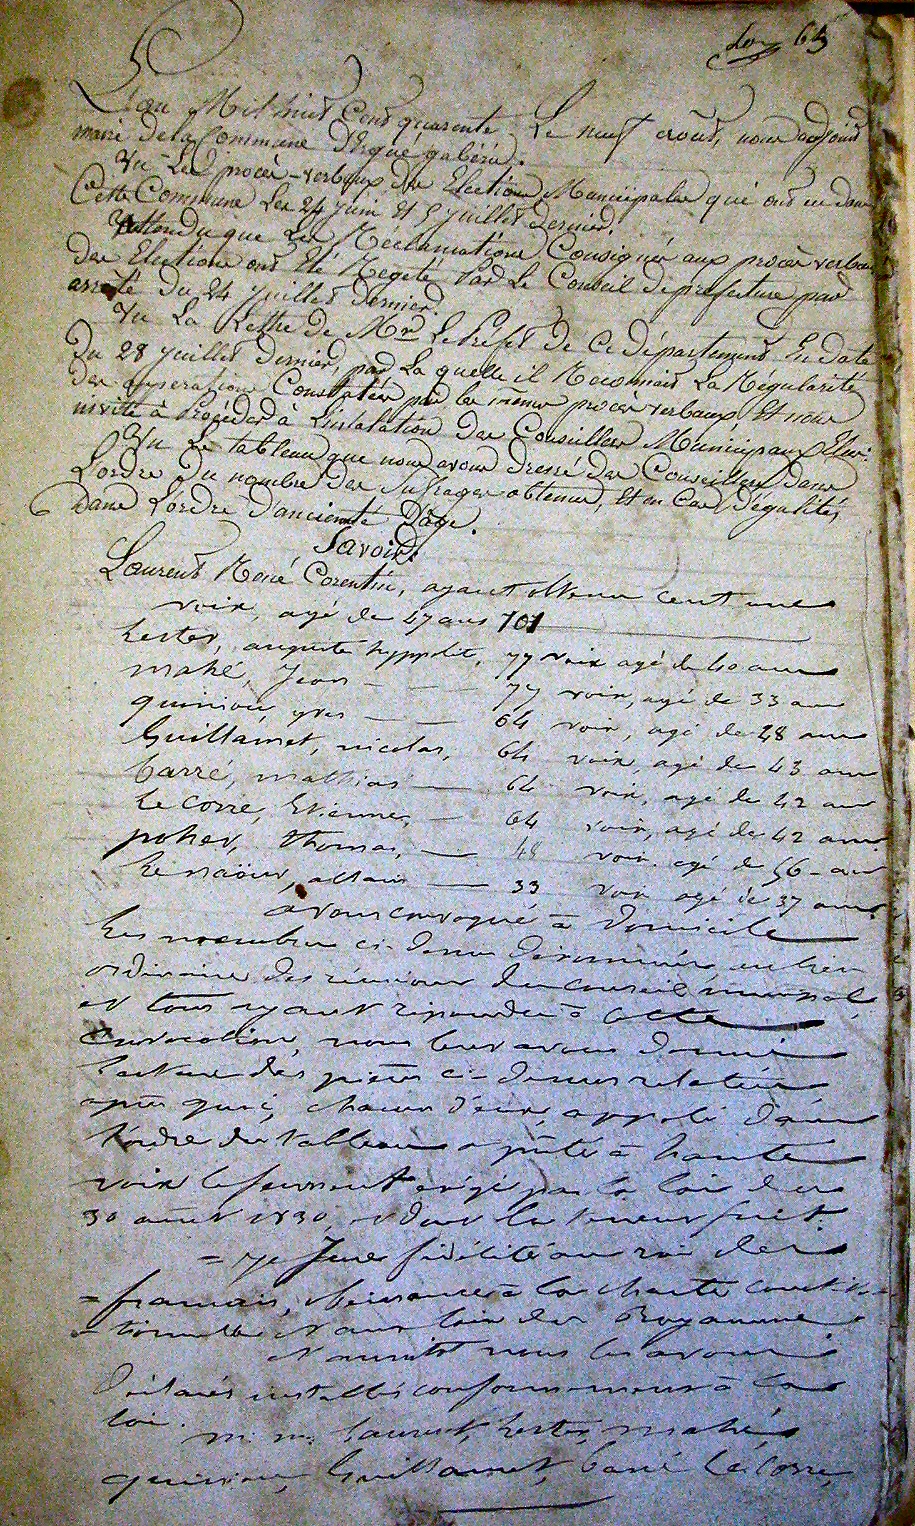 65
L'an Mil huit Cent quarente, Le neuf août, nous adjoint
maire de la Commune d'Ergué gabéric.
Vu Les procès-verbaux des Elections Municipales qui ont eu dans
Cette Commune Les 24 juin Et 5 juillet dernier.
Attendu que Les Réclamations Consignés aux procès verbaux
des Elections ont Eté Regeté par Le Conseil de préfecture par
arrêté du 24 juillet dernier.
Vu La Lettre de Mr Le Préfet de Ce département En date
du 28 juillet dernier, par La quelle il Reconnait La Régularité
des opperations Constatées par les memes procès verbaux, Et nous
invite à Procéder à L'instalation des Conseillers Municipaux Elus.
Vu Le tableau que nous avons dressé des Conseillers dans
L'ordre du nombre des suffrages obtenus, Et en Cas d'égalités
dans L'ordre d'ancienté d'âge.
Savoir.
Laurent René Corentin, ayant obtenu cent une
voix, agé de 47 ans 101
Lester, auguste hyppolite, 77 voix agé de 40 ans
mahé, Jean 77 voix, agé de 33 ans
quiniou, yves 64 voix, agé de 48 ans
Guillamet, nicolas, 64 voix, agé de 43 ans
barré, mathias 64 voix, agé de 42 ans
Le Corre, Etienne, 64 voix, agé de 42 ans
poher, thomas, 48 voix agé de 56 ans
Le naöur, allain 33 voix agé de 37 ans
avons convoqué à domicile
Les membres ci-dessus dénommés, au lieu
ordinaire des réunions du conseil municipal,
et tous ayant répondu à cette
Convocation, nous leur avons donné
lecture des pièces ci-dessus relatées
après quoi, chacun d'eux, appelé dans
l'ordre du tableau a prêté à haute
voix le serment exigé par la loi du
30 août 1830, et dont la teneur suit.
= Je Jure fidélité au roi des
= français, obéissance à la charte constitu-
= tionnelle et aux lois du Royaume
et ensuite nous les avons
déclarés installés conformément à la
loi.
m. m. Laurent, Lester, mahé,
quiniou, Guillamet, barré Le Corre,